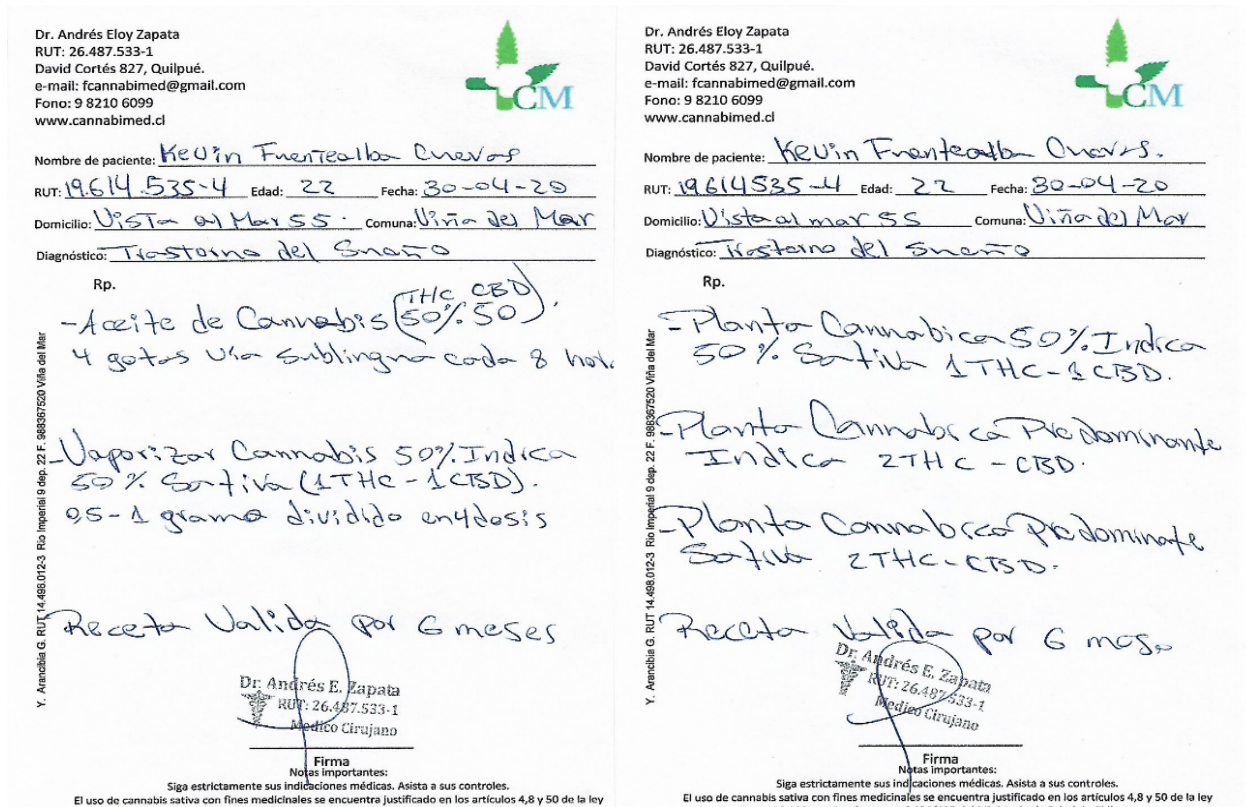 Dr. Andrés Eloy Zapata
RUT: 26.487.533-1
David Cortés 827, Quilpué.
e-mail: fcannabimed@gmail.com
Fono: 9 8210 6099
www.cannabimed.cl
CM
Nombre de paciente: Kevin Fuentealba Cuevas
RUT: 19.614.535-4 Edad: 22 Fecha: 30-04-20
Domicilio: Vista al Mar 55. Comuna: Viña del Mar
Diagnóstico: Trastorno del Sueño
Rp.
THC CBD
- Aceite de Cannabis (50% 50).
4 gotas Via Sublingua cada 8 hor.
- Vaporizar Cannabis 50% Indica
50% Sativa (1THC - 1CBD).
0,5 - 1 gramo dividido en 4 dosis
Receta Valida por 6 meses
Dr. Andrés E. Zapata
RUT: 26.487.533-1
Medico Cirujano
Firma
Notas importantes:
Siga estrictamente sus indicaciones médicas. Asista a sus controles.
El uso de cannabis sativa con fines medicinales se encuentra justificado en los artículos 4,8 y 50 de la ley
Y. Arancibia G. RUT 14.498.012-3 Río Imperial 9 dep. 22 F. 988367520 Viña del Mar
Dr. Andrés Eloy Zapata
RUT: 26.487.533-1
David Cortés 827, Quilpué.
e-mail: fcannabimed@gmail.com
Fono: 9 8210 6099
www.cannabimed.cl
CM
Nombre de paciente: Kevin Fuentealba Cuevas.
RUT: 19614535-4 Edad: 22 Fecha: 30-04-20
Domicilio: Vista al mar 55 Comuna: Viña del Mar
Diagnóstico: Trastorno del Sueño
Rp.
- Planta Cannabica 50% Indica
50% Sativa 1THC-1CBD.
- Planta Cannabica Predominante
Indica 2THC - CBD.
- Planta Cannabica Predominate
Sativa 2THC-CBD.
Receta Valida por 6 mes
Dr. Andrés E. Zapata
RUT: 26.487.533-1
Medico Cirujano
Firma
Notas importantes:
Siga estrictamente sus indicaciones médicas. Asista a sus controles.
El uso de cannabis sativa con fines medicinales se encuentra justificado en los artículos 4,8 y 50 de la ley
Y. Arancibia G. RUT 14.498.012-3 Río Imperial 9 dep. 22 F. 988367520 Viña del Mar